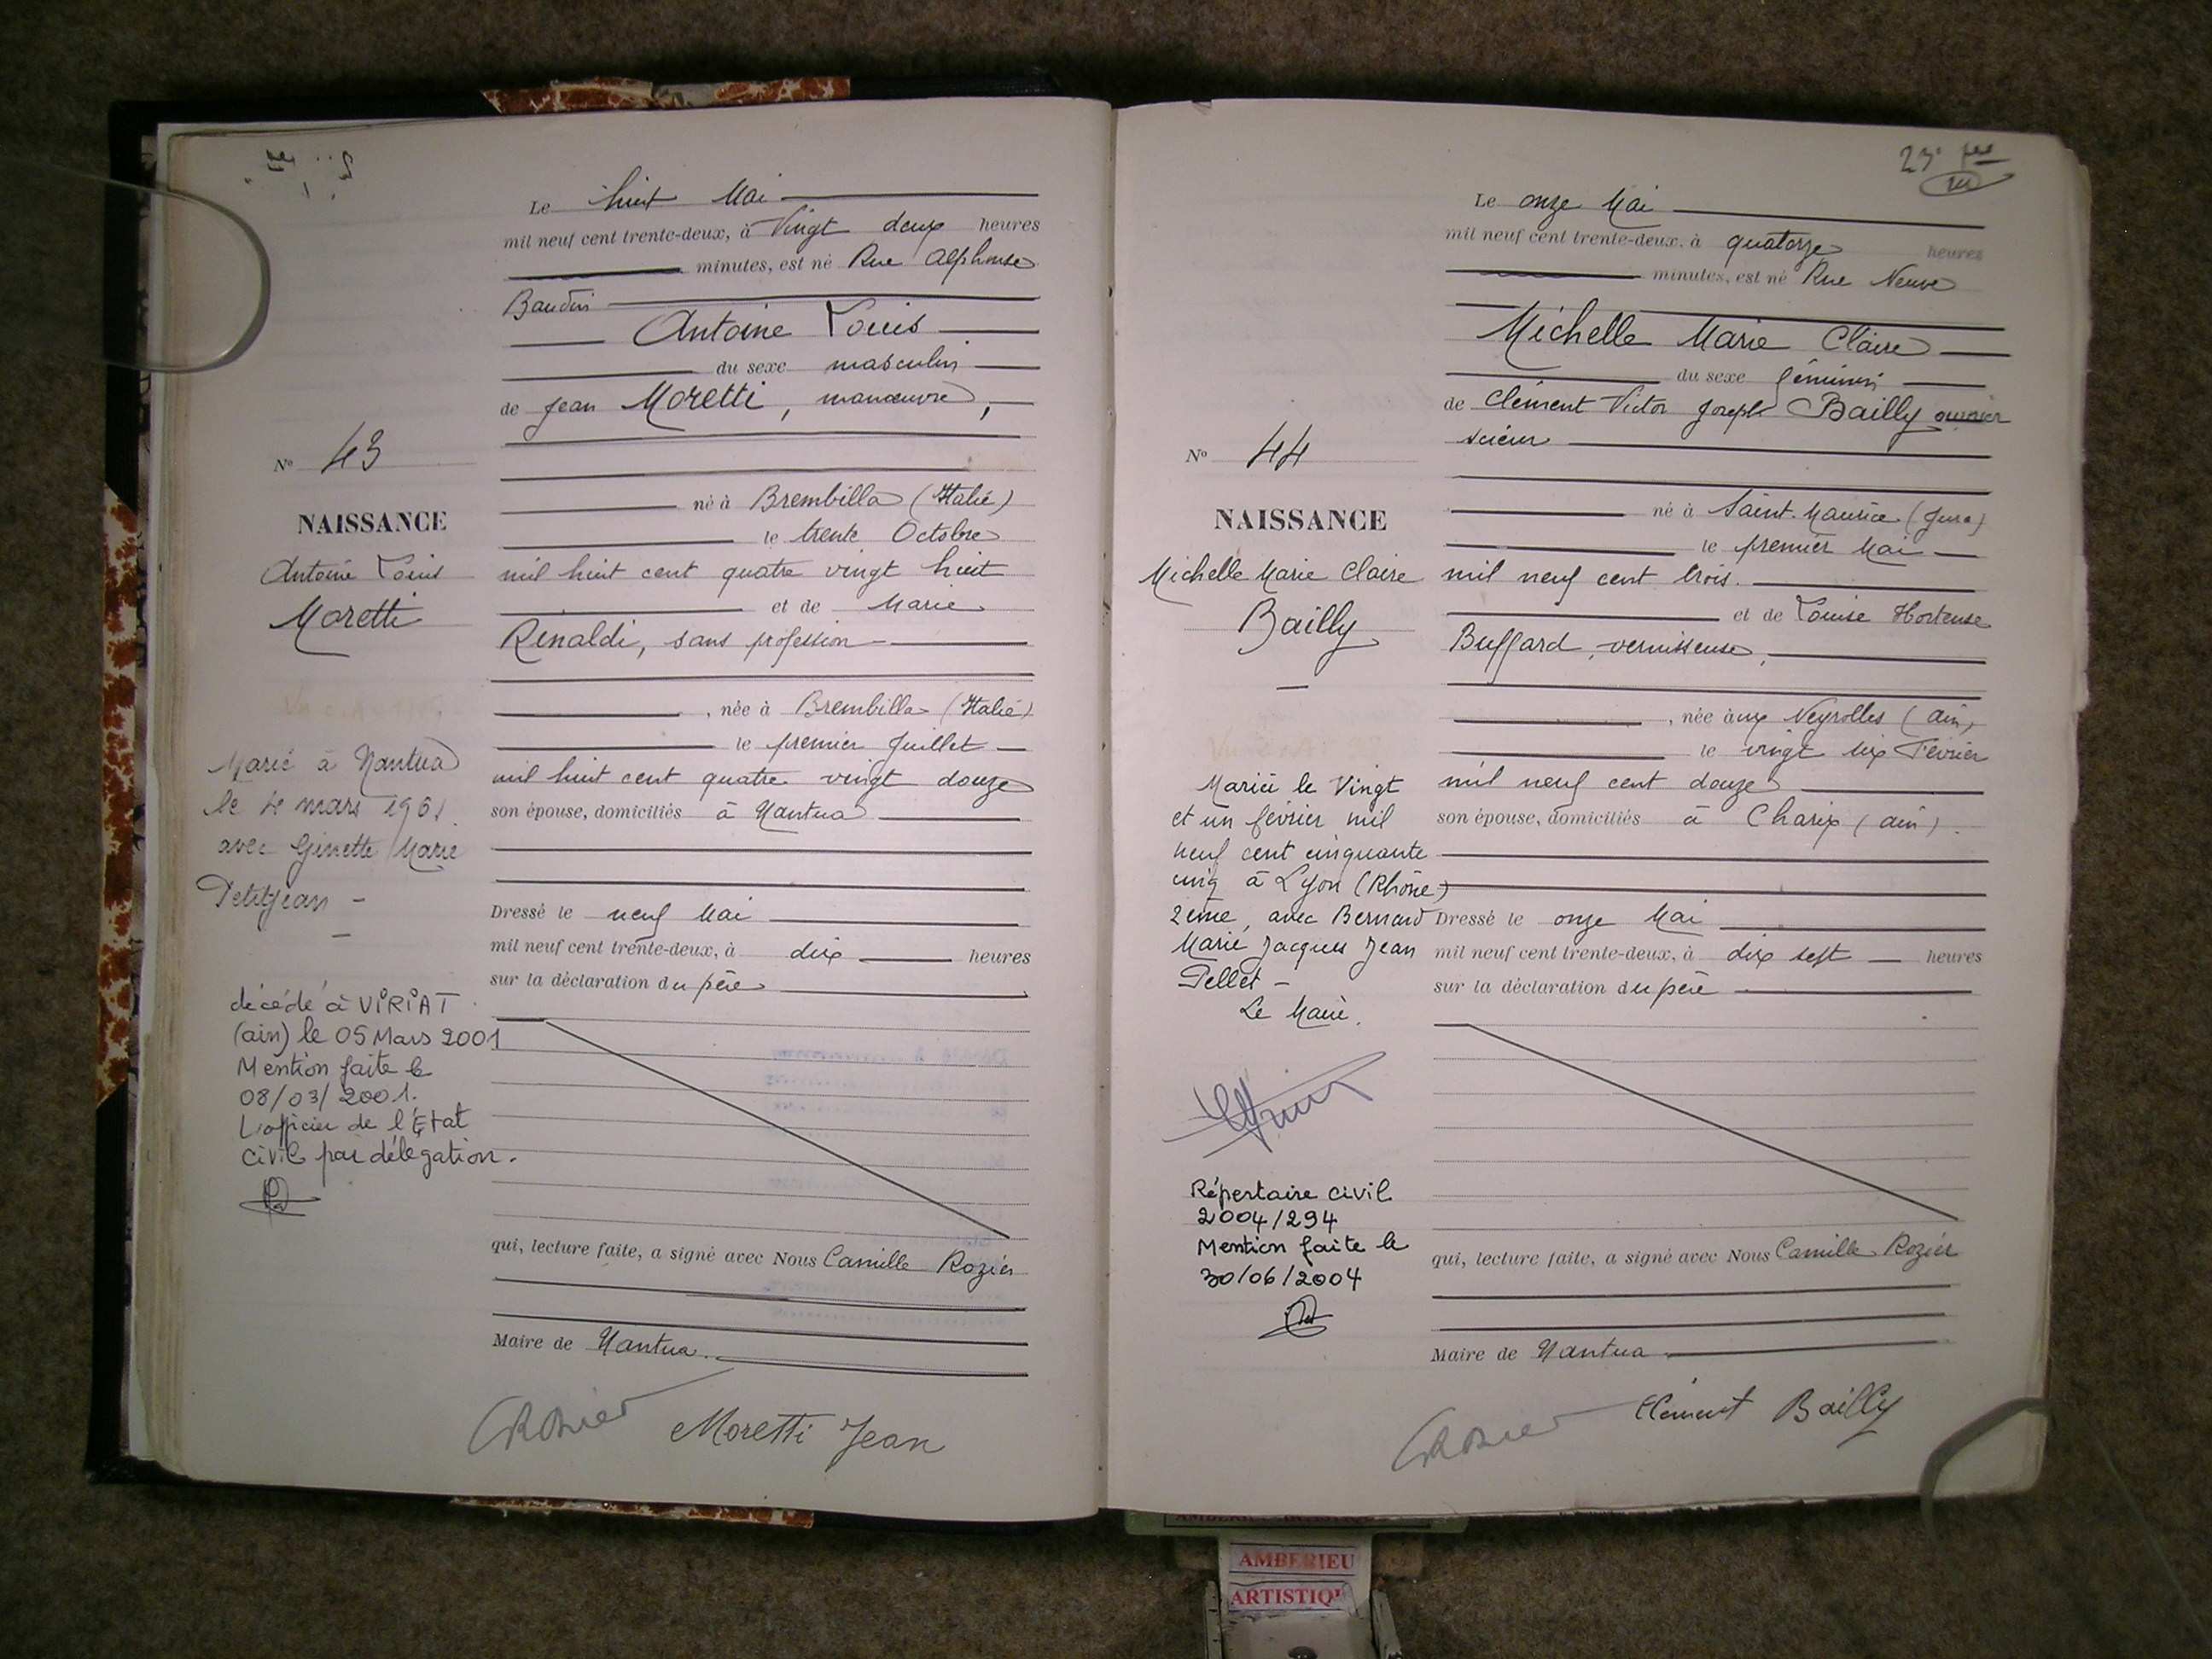 Le huit Mai
mil neuf cent trente-deux, à Vingt deux heures
minutes, est né Rue Alphonse
Baudin
Antoine Louis
du sexe masculin
de Jean Moretti, manœuvre,
N° 43
NAISSANCE
Antoine Louis
Moretti
né à Brembilla (Italie)
le trente Octobre
mil huit cent quatre vingt huit
et de Marie
Rinaldi, sans profession
, née à Brembilla (Italie)
le premier Juillet
mil huit cent quatre vingt douze
son épouse, domiciliés à Nantua
Marié à Nantua
le 4 mars 1961
avec Ginette Marie
Petitjean -
Dressé le neuf Mai
mil neuf cent trente-deux, à dix heures
sur la déclaration du père
décédé à VIRIAT
(ain) le 05 Mars 2001
Mention faite le
08/03/2001.
L'officier de l'État
Civil par délégation.
qui, lecture faite, a signé avec Nous Camille Rozier
Maire de Nantua
CRozier
Moretti Jean
23e
Le onze Mai
mil neuf cent trente-deux, à quatorze heures
minutes, est né Rue Neuve
Michelle Marie Claire
du sexe féminin
de Clément Victor Joseph Bailly ouvrier
scieur
N° 44
NAISSANCE
Michelle Marie Claire
Bailly
né à Saint-Maurice (Jura)
le premier Mai
mil neuf cent trois.
et de Louise Hortense
Buffard, vernisseuse,
, née à ux Neyrolles (ain)
le vingt six Février
mil neuf cent douze
son épouse, domiciliés à Charix (ain).
Mariée le Vingt
et un février mil
neuf cent cinquante
cinq à Lyon (Rhône)
2ème, avec Bernard
Marie Jacques Jean
Pellet -
Le Maire.
Dressé le onze Mai
mil neuf cent trente-deux, à dix sept heures
sur la déclaration du père
Répertoire civil
2004/294
Mention faite le
30/06/2004
qui, lecture faite, a signé avec Nous Camille Rozier
Maire de Nantua
CRozier
Clément Bailly
AMBERIEU
ARTISTIQ